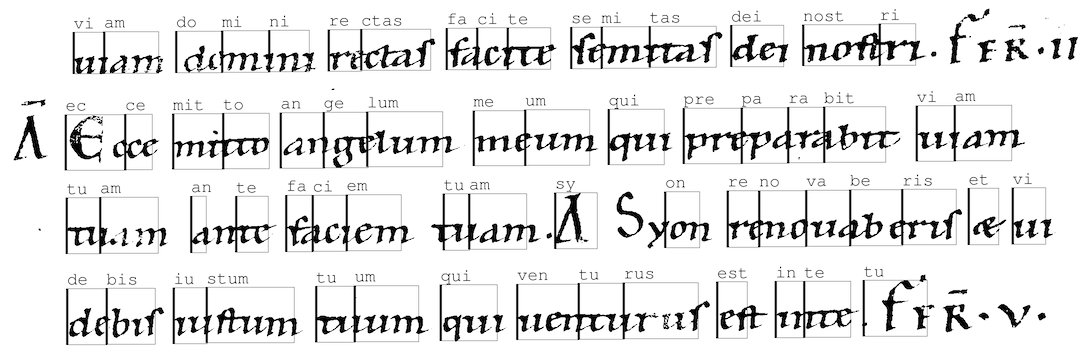 vi am do mi ni re ctas fa ci te se mi tas dei nost ri
uiam domini rectas facite semitas dei nostri. f FR̄. II
ec ce mit to an ge lum me um qui pre pa ra bit vi am
Ā Ecce mitto angelum meum qui preparabit uiam
tu am an te fa ci em tu am sy on re no va be ris et vi
tuam ante faciem tuam. A Syon renouaberis æ ui
de bis iu stum tu um qui ven tu rus est in te tu
debis iustum tuum qui uenturus est inte. f FR̄. v.